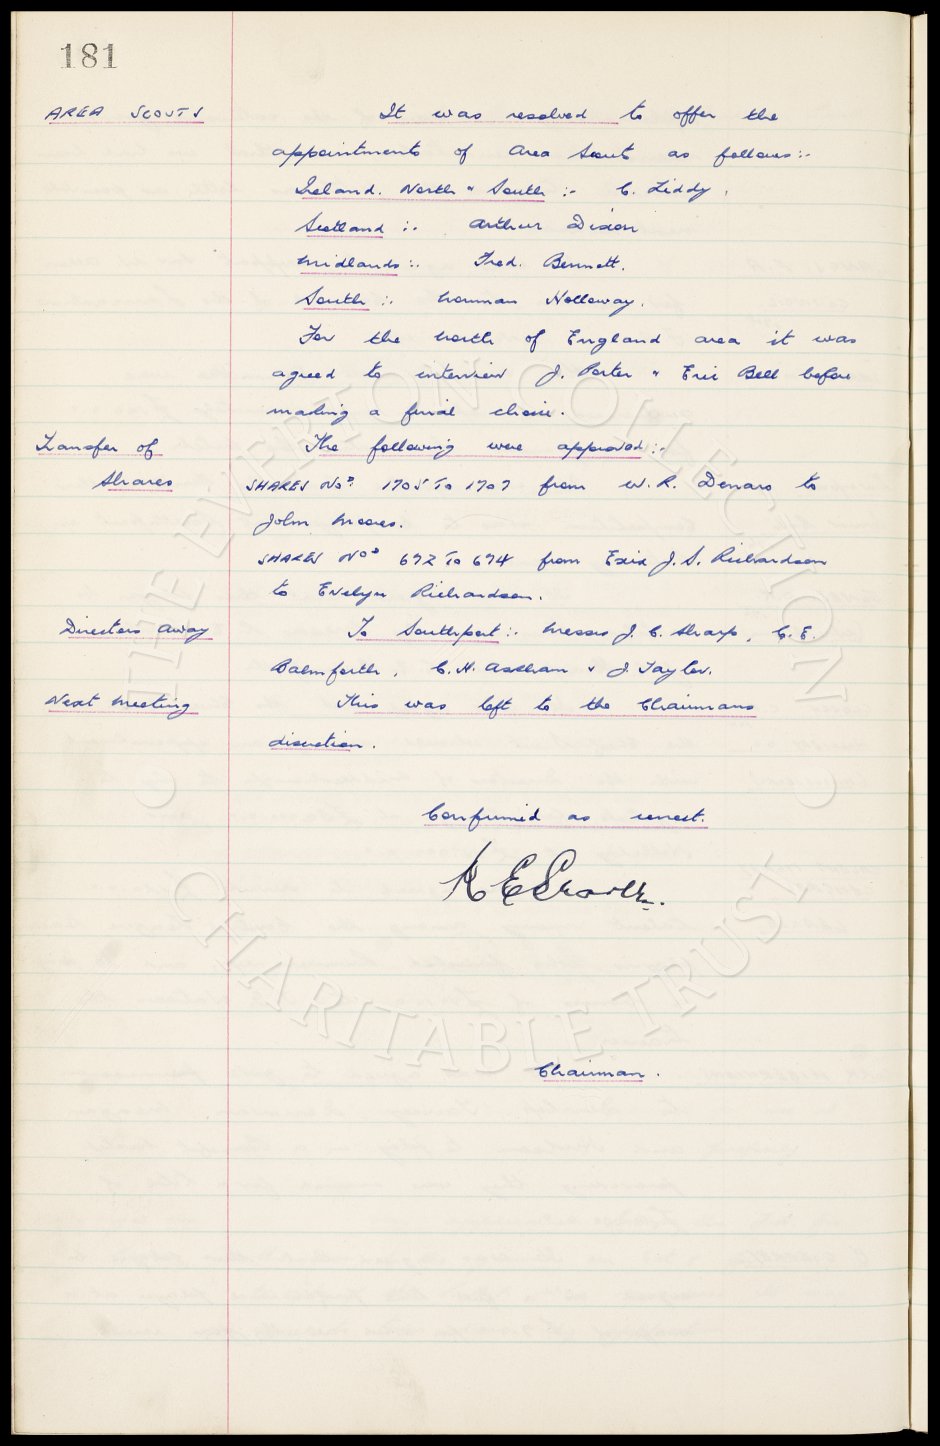 181
AREA SCOUTS It was resolved to offer the
appointments of Area Scouts as follows:-
Ireland. North " South :- C. Liddy.
Scotland :- Arthur Dixon
Midlands :- Fred. Bennett.
South :- Norman Holloway.
For the North of England area it was
agreed to interview J. Porter " Eric Bell before
making a final choice.
Transfer of The following were approved :-
Shares SHARES Nos. 1705 TO 1707 from W. R. Denaro to
John Meares.
SHARES Nos 672 TO 674 from J. S. Richardson
to Evelyn Richardson.
Directors Away To Southport :- Messrs J. C. Sharp, C. E.
Balmforth, C. H. Askham & J. Taylor.
Next Meeting This was left to the Chairmans
discretion.
Confirmed as correct.
Chairman.
THE EVERTON COLLECTION
CHARITABLE TRUST